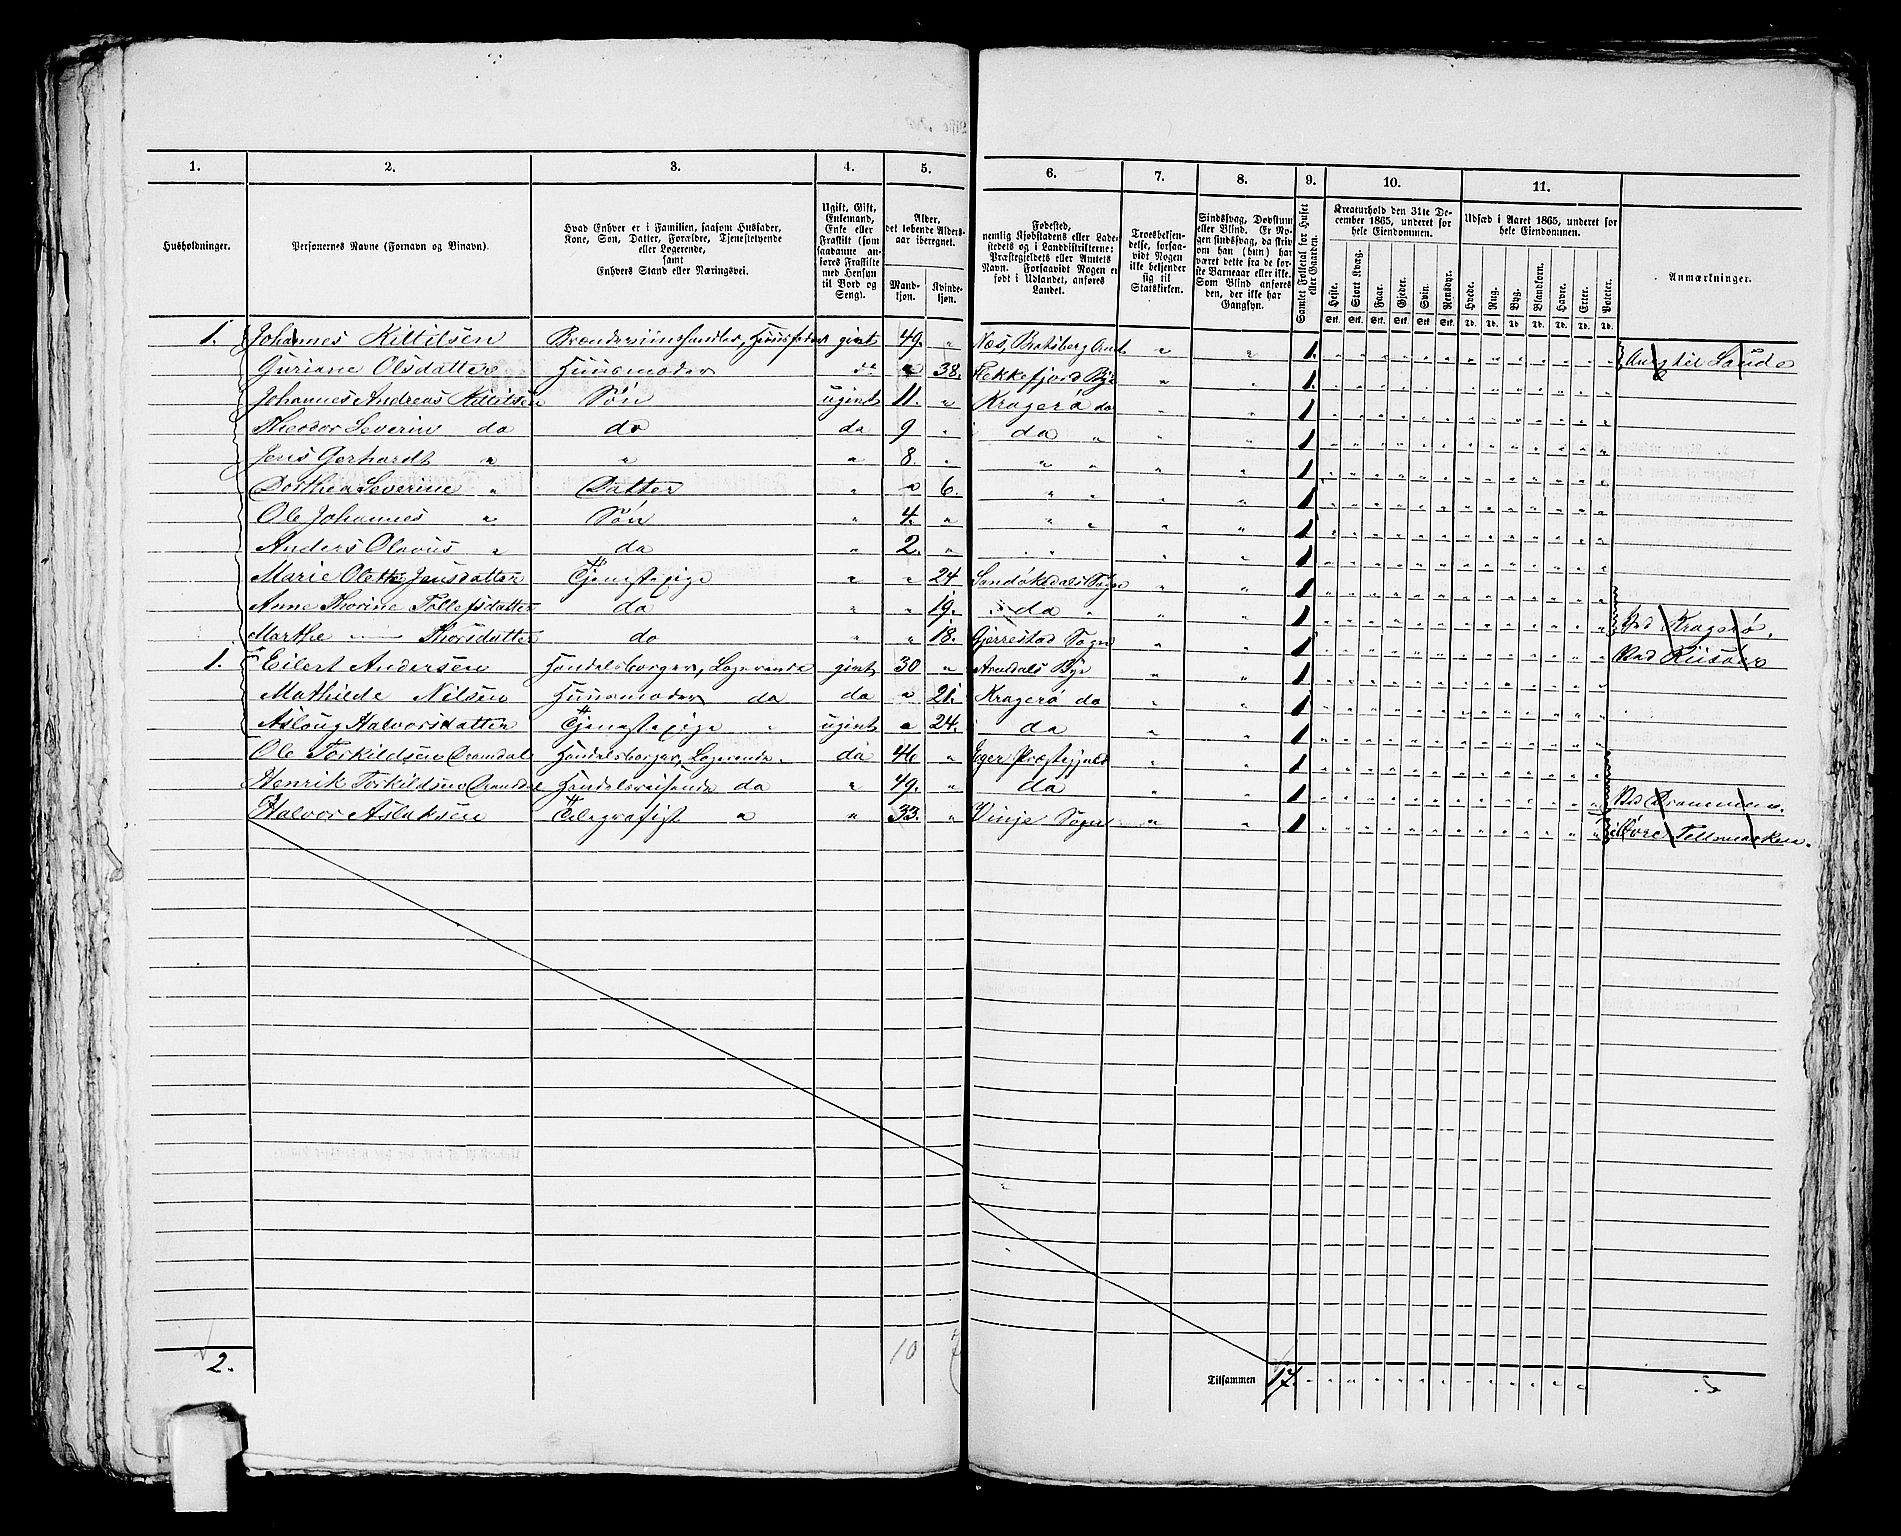 1. 2. 3. 4. 5. 6. 7. 8. 9. 10. 11.
Husholdninger.
Personernes Navne (Fornavn og Binavn).
Hvad Enhver er i Familien, saasom Husfader,
Kone, Søn, Datter, Forældre, Tjenestetyende
eller Logerende,
samt
Enhvers Stand eller Næringsvei.
Ugift, Gift,
Enkemand,
Enke eller
Fraskilt (som
saadanne an-
føres Fraskilte
med Hensyn
til Bord og
Seng).
Alder,
det løbende Alders-
aar iberegnet.
Mand-
kjøn.
Kvinde-
kjøn.
Fødested,
nemlig Kjøbstadens eller Lade-
stedets og i Landdistrikterne:
Præstegjeldets eller Amtets
Navn. Forsaavidt Nogen er
født i Udlandet, anføres
Landet.
Troesbekjen-
delse, forsaa-
vidt Nogen
ikke bekjender
sig til
Statskirken.
Sindssvag, Døvstum
eller Blind. Er No-
gen sindssvag, da skriv
om han (hun) har
været dette fra de før-
ste Barneaar eller ikke.
Som Blind anføres
den, der ikke har
Gangsyn.
Samlet Folketal for Huset
eller Gaarden.
Kreaturhold den 31te De-
cember 1865, underet for
hele Eiendommen.
Heste. Stort Kvæg. Faar. Gjeder. Svin. Rensdyr.
Stk. Stk. Stk. Stk. Stk. Stk.
Udsæd i Aaret 1865, underet for
hele Eiendommen.
Hvede. Rug. Byg. Blandkorn. Havre. Erter. Poteter.
Td. Td. Td. Td. Td. Td. Td.
Anmærkninger.
1. Johannes Kittilsen Brændeviinshandler, Huusfader givt 49. „ Næs, Bratsberg Amt „ „ 1.
Guriane Olsdatter Huusmoder do „ 38. Flekkefjord Bye „ „ 1.
Johannes Andreas Kittilsen Søn ugivt 11. „ Kragerø do „ „ 1.
Theodor Severin do do da 9 „ da „ „ „ 1.
Jens Gerhardt „ „ „ 8. „ „ „ „ „ 1.
Dorthea Severine „ Datter „ „ 6. „ „ „ „ 1.
Ole Johannes „ Søn „ 4. „ „ „ „ „ 1.
Anders Olavus „ da „ 2. „ „ „ „ „ 1.
Marie Olette Jensdatter Tjenestepige „ „ 24 Sandøkedals Sogn „ „ 1.
Anne Thorine Tollefsdatter do „ „ 19. da „ „ „ 1.
Marthe Thorsdatter do „ „ 18. Gjerrestad Sogn „ „ 1. Ved Kragerø.
1. Eilert Andersen Handelsborger, Logerende givt 30 „ Arendals Bye „ „ 1. Ved Riisøer
Mathilde Nilsen Huusmoder do da „ 21. Kragerø do „ „ 1.
Asloug Halvorsdatter Tjenestepige „ ugivt „ 24. da „ „ 1.
Ole Torkildsen Dramdal Handelsborger, Logerende. da 46 „ Eger Præstegjeld „ „ 1.
Henrik Torkildsen Dramdal Handelsreisende da „ 49. „ da „ „ 1. Ved Drammen.
Halvor Aslaksen Telegrafist „ „ 33. „ Vinje Sogn „ „ 1. Øvre Tellemarken.
2. 10 7 Tilsammen 17. 2.